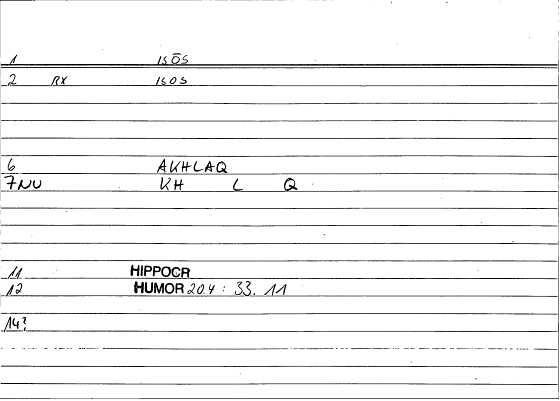 1 ISŌS
2 RX ISOS
6 AKHLAQ
7NU KH L Q
11 HIPPOCR
12 HUMOR 20.4 : 33. 11
14?